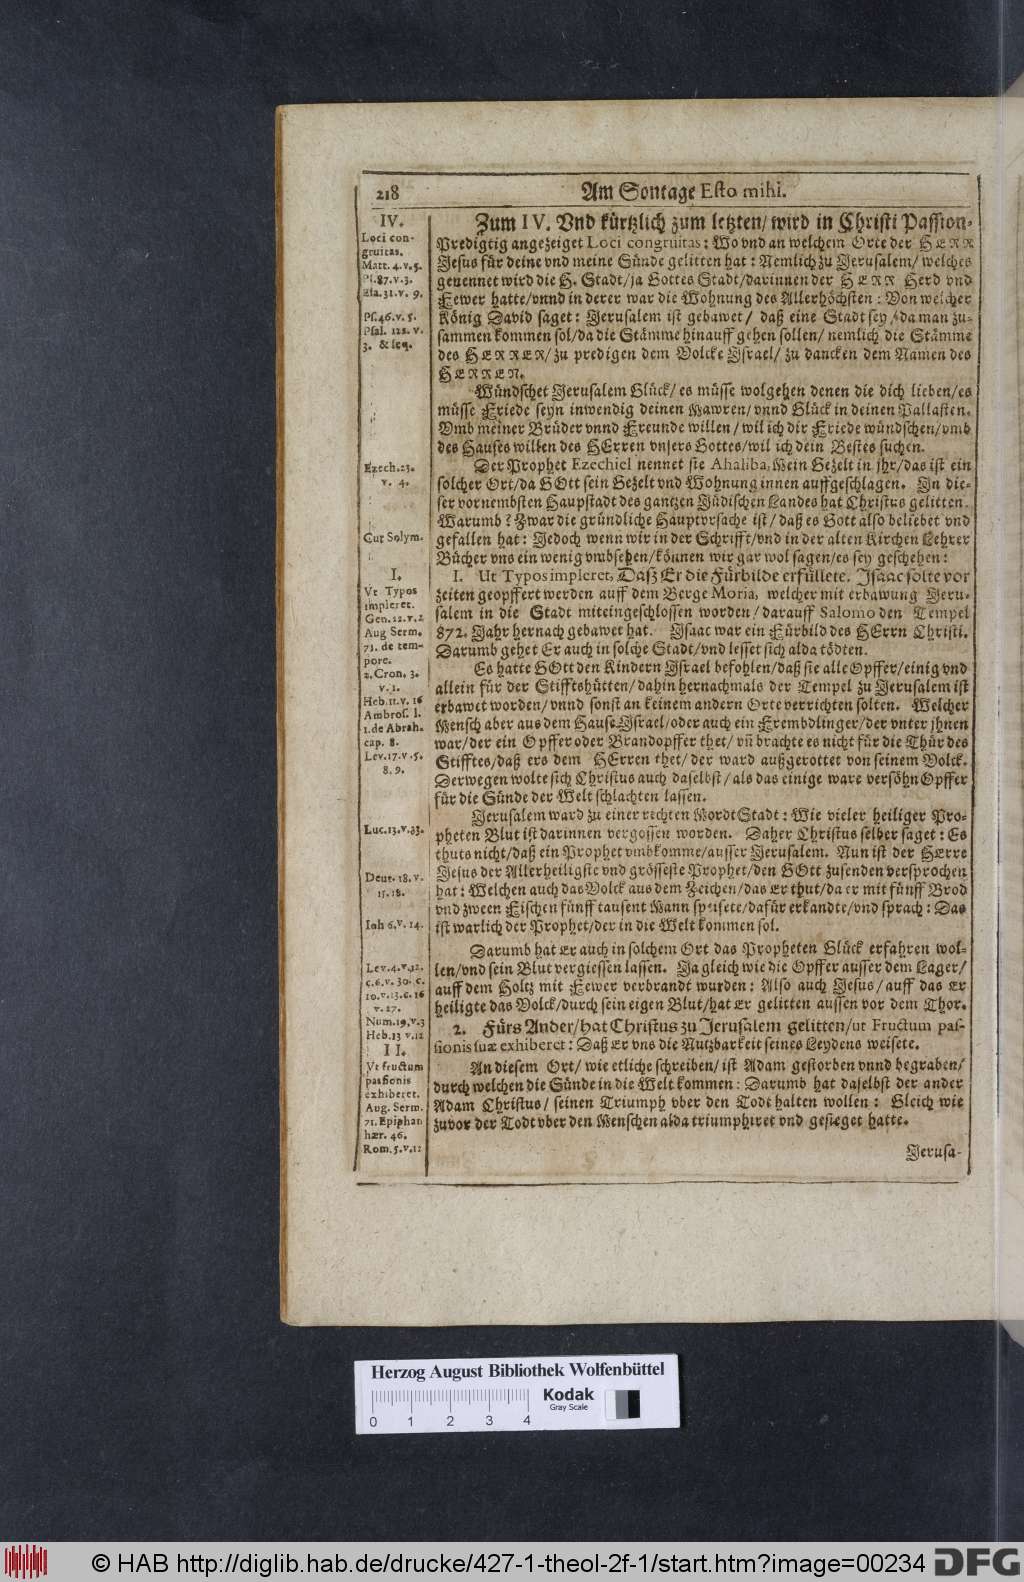 218
Am Sontage Esto mihi.
IV.
Loci con-
gruitas.
Matt. 4. v. 5.
Ps. 87. v. 3.
Esa. 31. v. 9.
Ps. 46. v. 5.
Psal. 122. v.
3. & seq.
Ezech. 23.
v. 4.
Cur Solym.
I.
Vt Typos
impleret.
Gen. 22. v. 2
Aug Serm.
71. de tem-
pore.
2. Cron. 3.
v. 1.
Heb. 11. v. 16
Ambros. l.
1. de Abrah.
cap. 8.
Lev. 17. v. 5.
8. 9.
Luc. 13. v. 33.
Deut. 18. v.
15. 18.
Ioh 6. v. 14.
Lev. 4. v. 12.
c. 6. v. 30. c.
10. v. 13. c. 16
v. 27.
Num. 19. v. 3
Heb. 13 v. 12
II.
Vt fructum
passionis
exhiberet.
Aug. Serm.
71. Epiphan
hær. 46.
Rom. 5. v. 12
Zum IV. Vnd kürtzlich zum letzten/ wird in Christi Passion-
Predigtig angezeiget Loci congruitas: Wo vnd an welchem Orte der HERR
Jesus für deine vnd meine Sünde gelitten hat: Nemlich zu Jerusalem/ welches
genennet wird die H. Stadt/ ja Gottes Stadt/ darinnen der HERR Herd vnd
Fewer hatte/ vnnd in derer war die Wohnung des Allerhöchsten: Von welcher
König David saget: Jerusalem ist gebawet/ daß eine Stadt sey/ da man zu-
sammen kommen sol/ da die Stämme hinauff gehen sollen/ nemlich die Stämme
des HERREN/ zu predigen dem Volcke Israel/ zu dancken dem Namen des
HERREN.
Wündschet Jerusalem Glück/ es müsse wolgehen denen die dich lieben/ es
müsse Friede seyn inwendig deinen Mawren/ vnnd Glück in deinen Pallasten.
Vmb meiner Brüder vnnd Freunde willen/ wil ich dir Friede wündschen/ vmb
des Hauses willen des HErren vnsers Gottes/ wil ich dein Bestes suchen.
Der Prophet Ezechiel nennet sie Ahaliba, Mein Gezelt in jhr/ das ist ein
solcher Ort/ da GOtt sein Gezelt vnd Wohnung innen auffgeschlagen. In die-
ser vornembsten Hauptstadt des gantzen Jüdischen Landes hat Christus gelitten.
Warumb? Zwar die gründliche Hauptvrsache ist/ daß es Gott also beliebet vnd
gefallen hat: Jedoch wenn wir in der Schrifft/ vnd in der alten Kirchen Lehrer
Bücher vns ein wenig vmbsehen/ können wir gar wol sagen/ es sey geschehen:
I. Ut Typos impleret, Daß Er die Fürbilde erfüllete. Isaac solte vor
zeiten geopffert werden auff dem Berge Moria, welcher mit erbawung Jeru-
salem in die Stadt miteingeschlossen worden/ darauff Salomo den Tempel
872. Jahr hernach gebawet hat. Isaac war ein Fürbild des HErrn Christi.
Darumb gehet Er auch in solche Stadt/ vnd lesset sich alda tödten.
Es hatte GOtt den Kindern Israel befohlen/ daß sie alle Opffer/ einig vnd
allein für der Stifftshütten/ dahin hernachmals der Tempel zu Jerusalem ist
erbawet worden/ vnnd sonst an keinem andern Orte verrichten solten. Welcher
Mensch aber aus dem Hause Israel/ oder auch ein Frembdlinger/ der vnter jhnen
war/ der ein Opffer oder Brandopffer thet/ vñ brachte es nicht für die Thür des
Stifftes/ daß ers dem HErren thet/ der ward außgerottet von seinem Volck.
Derwegen wolte sich Christus auch daselbst/ als das einige ware versöhn Opffer
für die Sünde der Welt schlachten lassen.
Jerusalem ward zu einer rechten Mordt Stadt: Wie vieler heiliger Pro-
pheten Blut ist darinnen vergossen worden. Daher Christus selber saget: Es
thuts nicht/ daß ein Prophet vmbkomme/ ausser Jerusalem. Nun ist der HErre
Jesus der Allerheiligste vnd grösseste Prophet/ den GOtt zusenden versprochen
hat: Welchen auch das Volck aus dem Zeichen/ das Er thut/ da er mit fünff Brod
vnd zween Fischen fünff tausent Mann speisete/ dafür erkandte/ vnd sprach: Das
ist warlich der Prophet/ der in die Welt kommen sol.
Darumb hat Er auch in solchem Ort das Propheten Glück erfahren wol-
len/ vnd sein Blut vergiessen lassen. Ja gleich wie die Opffer ausser dem Lager/
auff dem Holtz mit Fewer verbrandt wurden: Also auch Jesus/ auff das Er
heiligte das Volck/ durch sein eigen Blut/ hat Er gelitten aussen vor dem Thor.
2. Fürs Ander/ hat Christus zu Jerusalem gelitten/ ut Fructum pas-
sionis suæ exhiberet: Daß Er vns die Nutzbarkeit seines Leydens weisete.
An diesem Ort/ wie etliche schreiben/ ist Adam gestorben vnnd begraben/
durch welchen die Sünde in die Welt kommen: Darumb hat daselbst der ander
Adam Christus/ seinen Triumph vber den Todt halten wollen: Gleich wie
zuvor der Todt vber den Menschen alda triumphiret vnd gesieget hatte.
Jerusa-
Herzog August Bibliothek Wolfenbüttel
0 1 2 3 4
Kodak
Gray Scale
© HAB http://diglib.hab.de/drucke/427-1-theol-2f-1/start.htm?image=00234
DFG